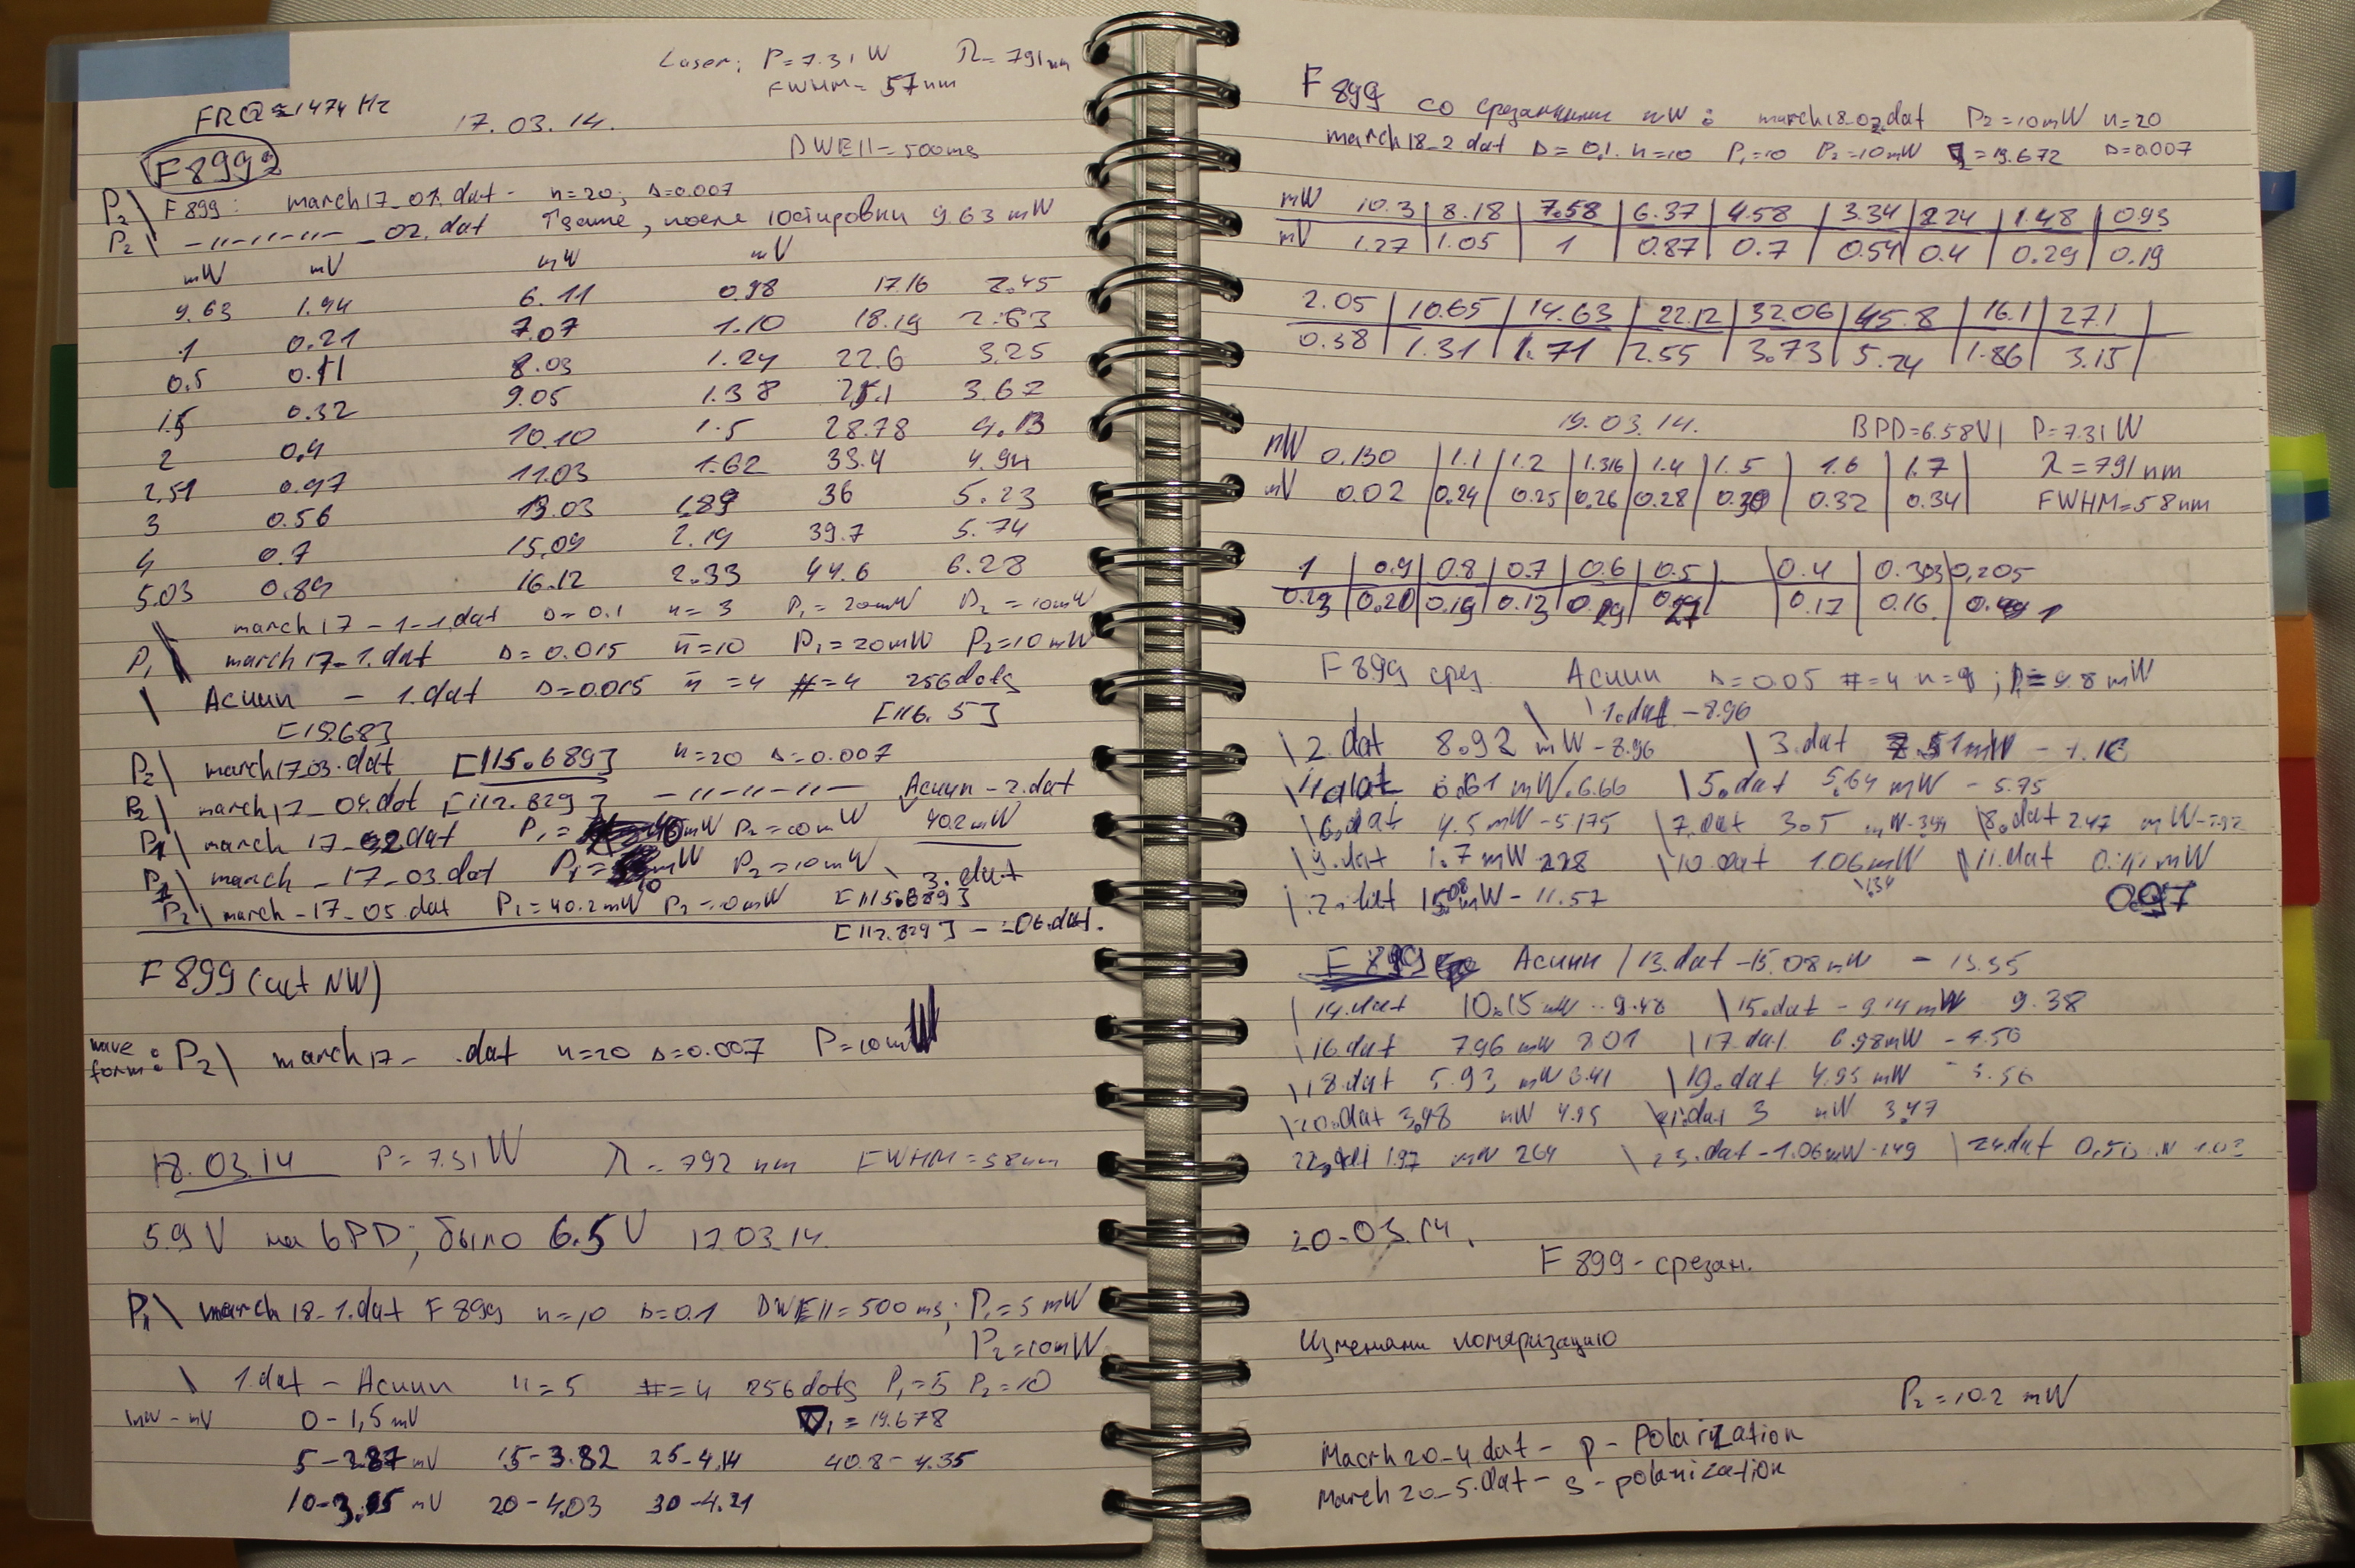 Laser: P=7.31 W λ=791nm
FWHM= 57nm
FRQ=1474 Hz
17.03.14.
DWEll=500ms
F899
P2\ F899: march17_01.dat - n=20; Δ=0.007
P2\ -"-"-"- _02.dat Тзаме, после юстировки 9.63 mW
mW mV mW mV
9.63 1.44 6.11 0.98 17.16 2.45
1 0.21 7.07 1.10 18.19 2.63
0.5 0.11 8.03 1.24 22.6 3.25
1.5 0.32 9.05 1.38 25.1 3.67
2 0.4 10.10 1.5 28.78 4.13
2.51 0.47 11.03 1.62 33.4 4.94
3 0.56 13.03 1.89 36 5.23
4 0.7 15.09 2.19 39.7 5.74
5.03 0.84 16.12 2.33 44.6 6.28
march17-1-1.dat Δ=0.1 n=3 P1=20mW P2=10mW
P1\ march17-1.dat Δ=0.015 n=10 P1=20mW P2=10mW
\ Асиин - 1.dat Δ=0.015 n=4 #=4 256dots
[19.68] [116.5]
P2\ march17.03.dat [115.689] n=20 Δ=0.007
P2\ march17_04.dat [112.829] -"-"-"- Асиин-2.dat
P1\ march 17_02.dat P1= mW P2=10mW 40.2mW
march_17_03.dat P1= mW P2=10mW \ 3.dat
P2\ march-17_05.dat P1=40.2mW P2=10mW [115.689]
[112.829] - -06.dat.
F899 (cut NW)
wave form: P2\ march17- .dat n=20 Δ=0.007 P=10mW
18.03.14 P=7.31W λ=792 nm FWHM=58nm
5.9V на bPD; было 6.5V 17.03.14.
P1\ march 18-1.dat F899 n=10 Δ=0.1 DWEll=500ms; P1=5mW
P2=10mW
\ 1.dat - Асиин n=5 #=4 256dots P1=5 P2=10
mW-mV 0-1,5mV ∇1=19.678
5-2.87mV 15-3.82 25-4.14 40.8-4.35
10-3.15 mV 20-4.03 30-4.21
F899 со срезанными nW: march18_02.dat P2=10mW n=20
march18_2.dat Δ=0.1. n=10 P1=10 P2=10mW =19.672 Δ=0.007
mW 10.3 8.18 7.58 6.37 4.58 3.34 2.24 1.48 0.93
mV 1.27 1.05 1 0.87 0.7 0.54 0.4 0.29 0.19
2.05 10.65 14.63 22.12 32.06 45.8 16.1 27.1
0.38 1.31 1.71 2.55 3.73 5.24 1.86 3.15
19.03.14. BPD=6.58V P=7.31W
mW 0.130 1.1 1.2 1.316 1.4 1.5 1.6 1.7 λ=791nm
mV 0.02 0.24 0.25 0.26 0.28 0.30 0.32 0.34 FWHM=58nm
1 0.9 0.8 0.7 0.6 0.5 0.4 0.303 0.205
0.20 0.19 0.13 0.17 0.16
F899 срез Асиин Δ=0.05 #=4 n=8; P=9.8mW
\1.dat -8.96
\2.dat 8.92 mW-8.96 \3.dat mW
\4.dat 6.61 mW.6.66 \5.dat 5.64 mW - 5.75
\6.dat 4.5mW-5.175 \7.dat 3.05 mW-3.94 \8.dat 2.47 mW
\9.dat 1.7mW 2.28 \10.dat 1.06mW \11.dat mW
1.34 0.97
\12.dat mW-11.57
F899 Асиин \13.dat -15.08mW - 13.35
\14.dat 10.15mW-9.48 \15.dat-9.14mW 9.38
\16.dat 7.96 mW 8.01 \17.dat 6.98mW
\18.dat 5.93 mW 6.41 \19.dat 4.95 mW - 5.56
\20.dat 3.98 mW 4.45 \21.dat 3 mW 3.47
22.dat 1.97 mW 2.64 \23.dat-1.06mW-1.49 \24.dat
20.03.14.
F899-срезан.
Изменяли поляризацию
P2=10.2 mW
Macrh20-4.dat- p-Polarization
March20-5.dat- s-polarization